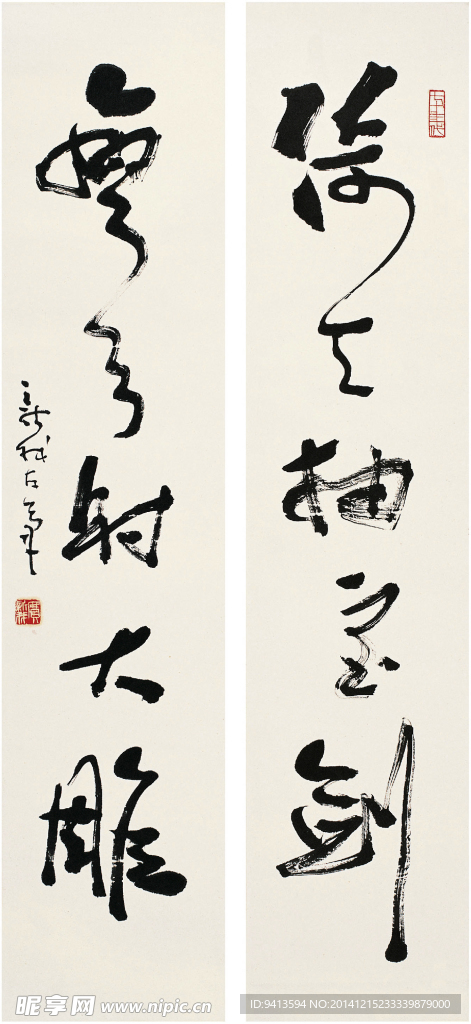 倚天抽宝劍
彎弓射大雕
昵享网 www.nipic.cn
ID:9413594 NO:20141215233339879000